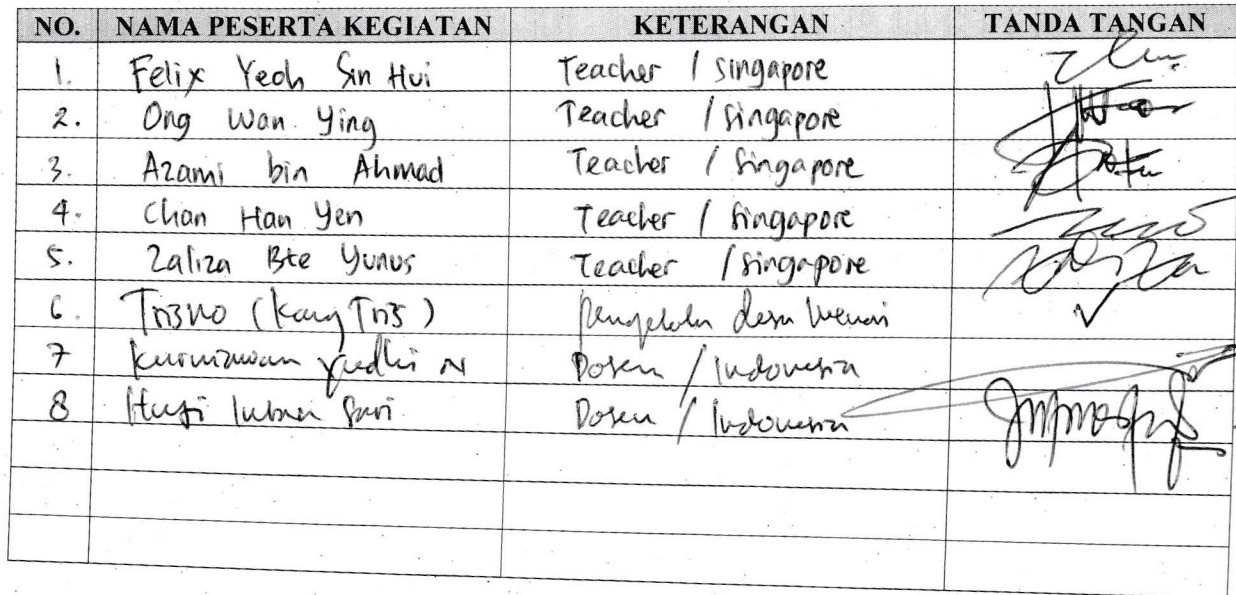 NO. NAMA PESERTA KEGIATAN KETERANGAN TANDA TANGAN
1. Felix Yeoh Sin Hui Teacher / Singapore
2. Ong Wan Ying Teacher / Singapore
3. Azami bin Ahmad Teacher / Singapore
4. Chan Han Yen Teacher / Singapore
5. Zaliza Bte Yunus Teacher / Singapore
6. (Kang Tris) Pengelola desa ✓
7 Kurniawan Yudhi N Dosen / Indonesia
8 Sari Dosen / Indonesia